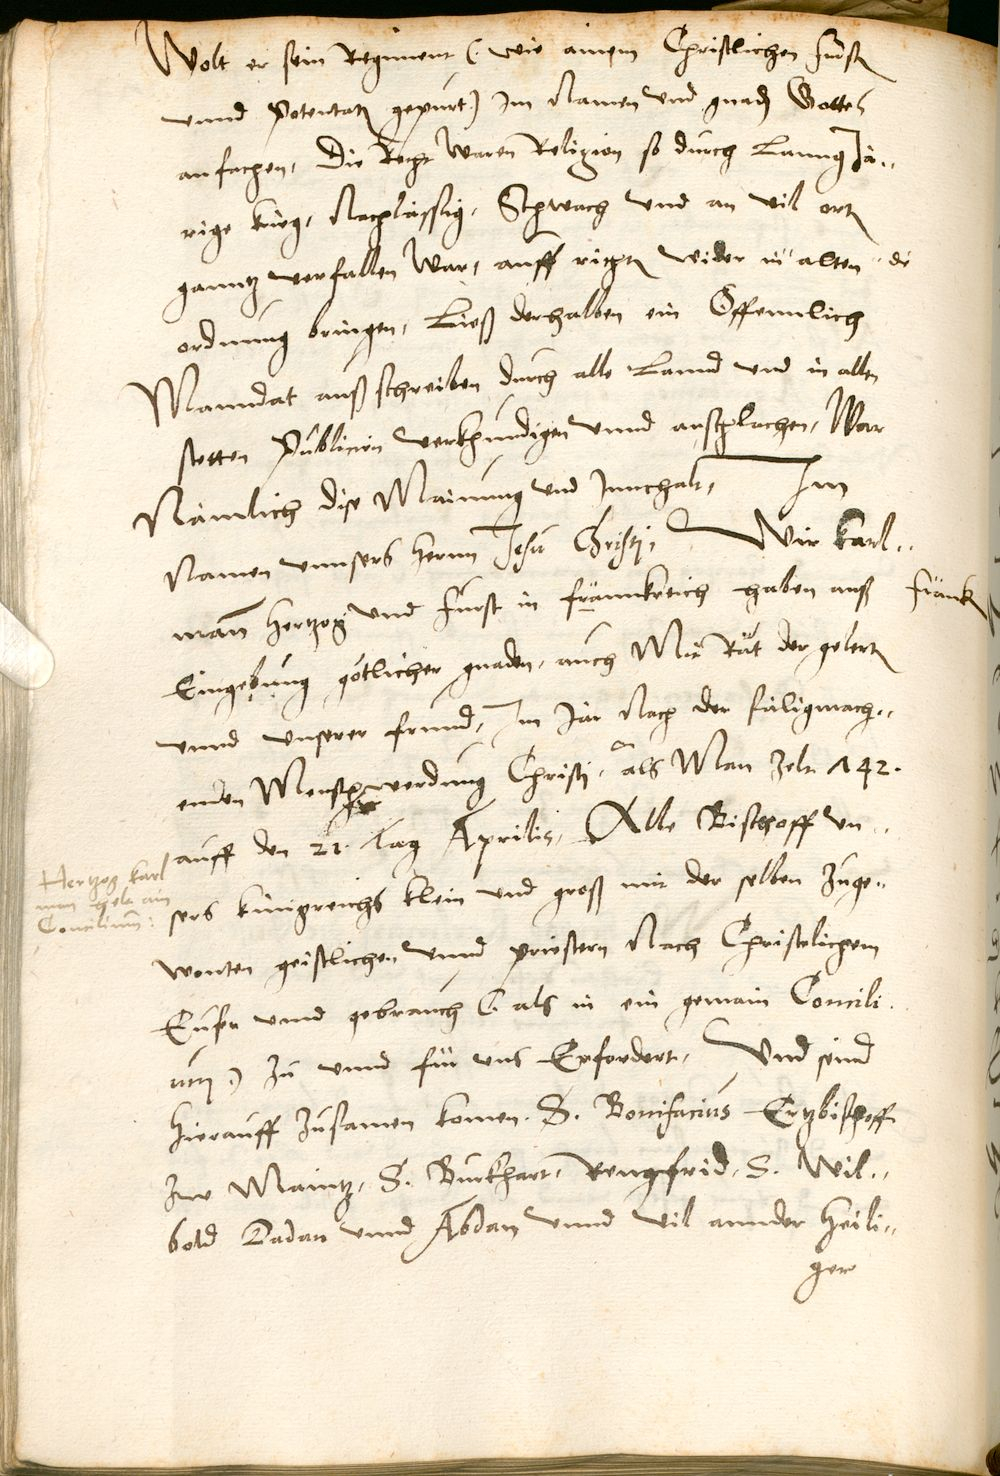 Wolt er sein Regiment (: wie ainem Christlichen fürst
vnnd Potentatn gepürt:) Im Namen vnd gnadn Gottes
anfachen, Die Recht Waren Religion so durch Lanng Jä..
rige krieg, Nachlässig, Schwach vnd an vil ortn
ganntz verfallen War, auff richtn wider in alten die
ordnung bringen, Ließ derhalben ein Offennlich
Manndat auß schreiben durch alle Lannd vnd in allen
stetten Publicirn verkhundigen vnnd anschlachen, War
Nämlich dise Mainung vnd Jnnehalt, Im
Namen vnnsers herrn Jesu Christi, Wir karl..
man Hertzog vnd Fürst in frannkreich haben auß
franckn
Eingebung götlicher gnaden, auch Mit Rat der gelertn
vnnd vnserer freund, Im Jar Nach der säligmach..
enden Menschwerdung Christi, als Man Zelt 742.
auff den 21. tag Aprilis, Alle Bischoff vn..
Hertzog karl
man helt ain
Concilium:
sers künigreichs klein vnd groß mit der selben zuge..
wonten geistlichen vnnd priestern Nach Christelichem
vnnd gebrauch (: als in ein gemain Concili
um:) Zu vnnd für vns Erfordert, Vnd seind
hierauff Zusamen komen. S. Bonifacius Ertzbischoff
Zw Maintz, S. Burkhart, Rengfrid, S. Wil..
bold Dadan vnnd Abdan vnnd vil annder heili..
ger